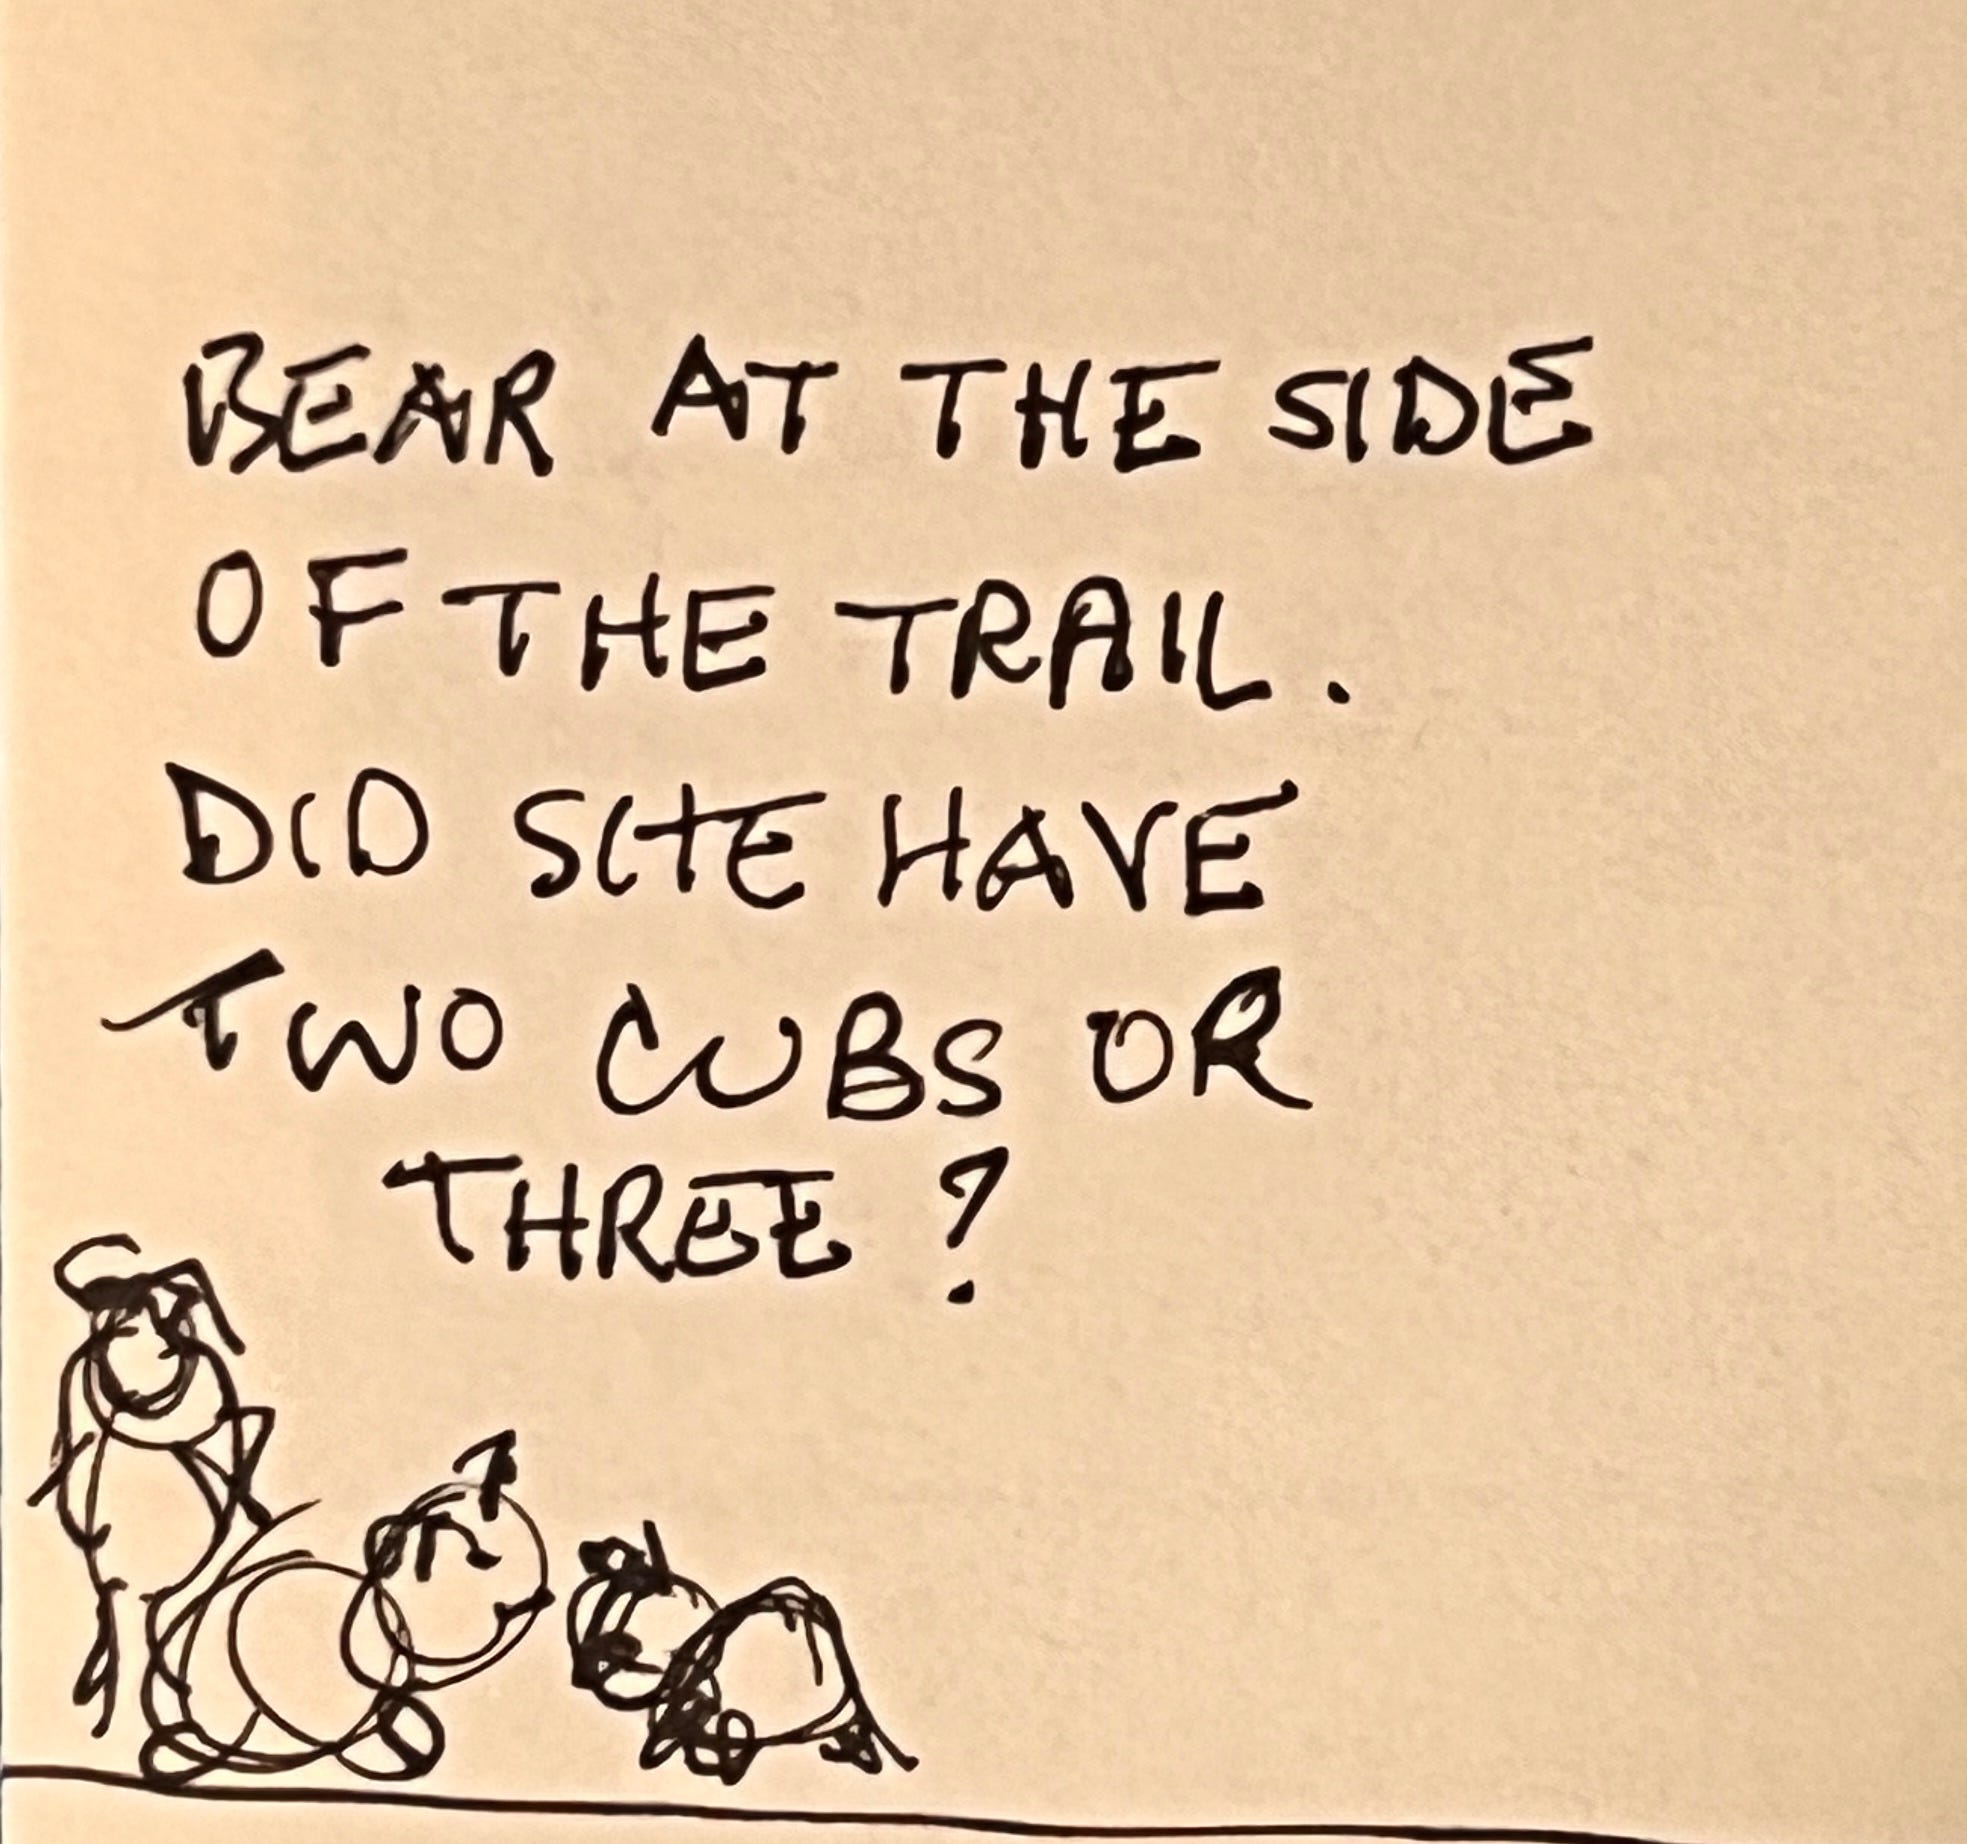 BEAR AT THE SIDE
OF THE TRAIL.
DID SHE HAVE
TWO CUBS OR
THREE?